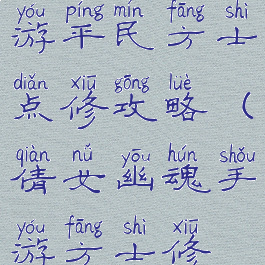 yóu píng mín fāng shì
游平民方士
diǎn xiū gōng lüè
点修攻略（
qiàn nǚ yōu hún shǒu
倩女幽魂手
yóu fāng shì xiū
游方士修